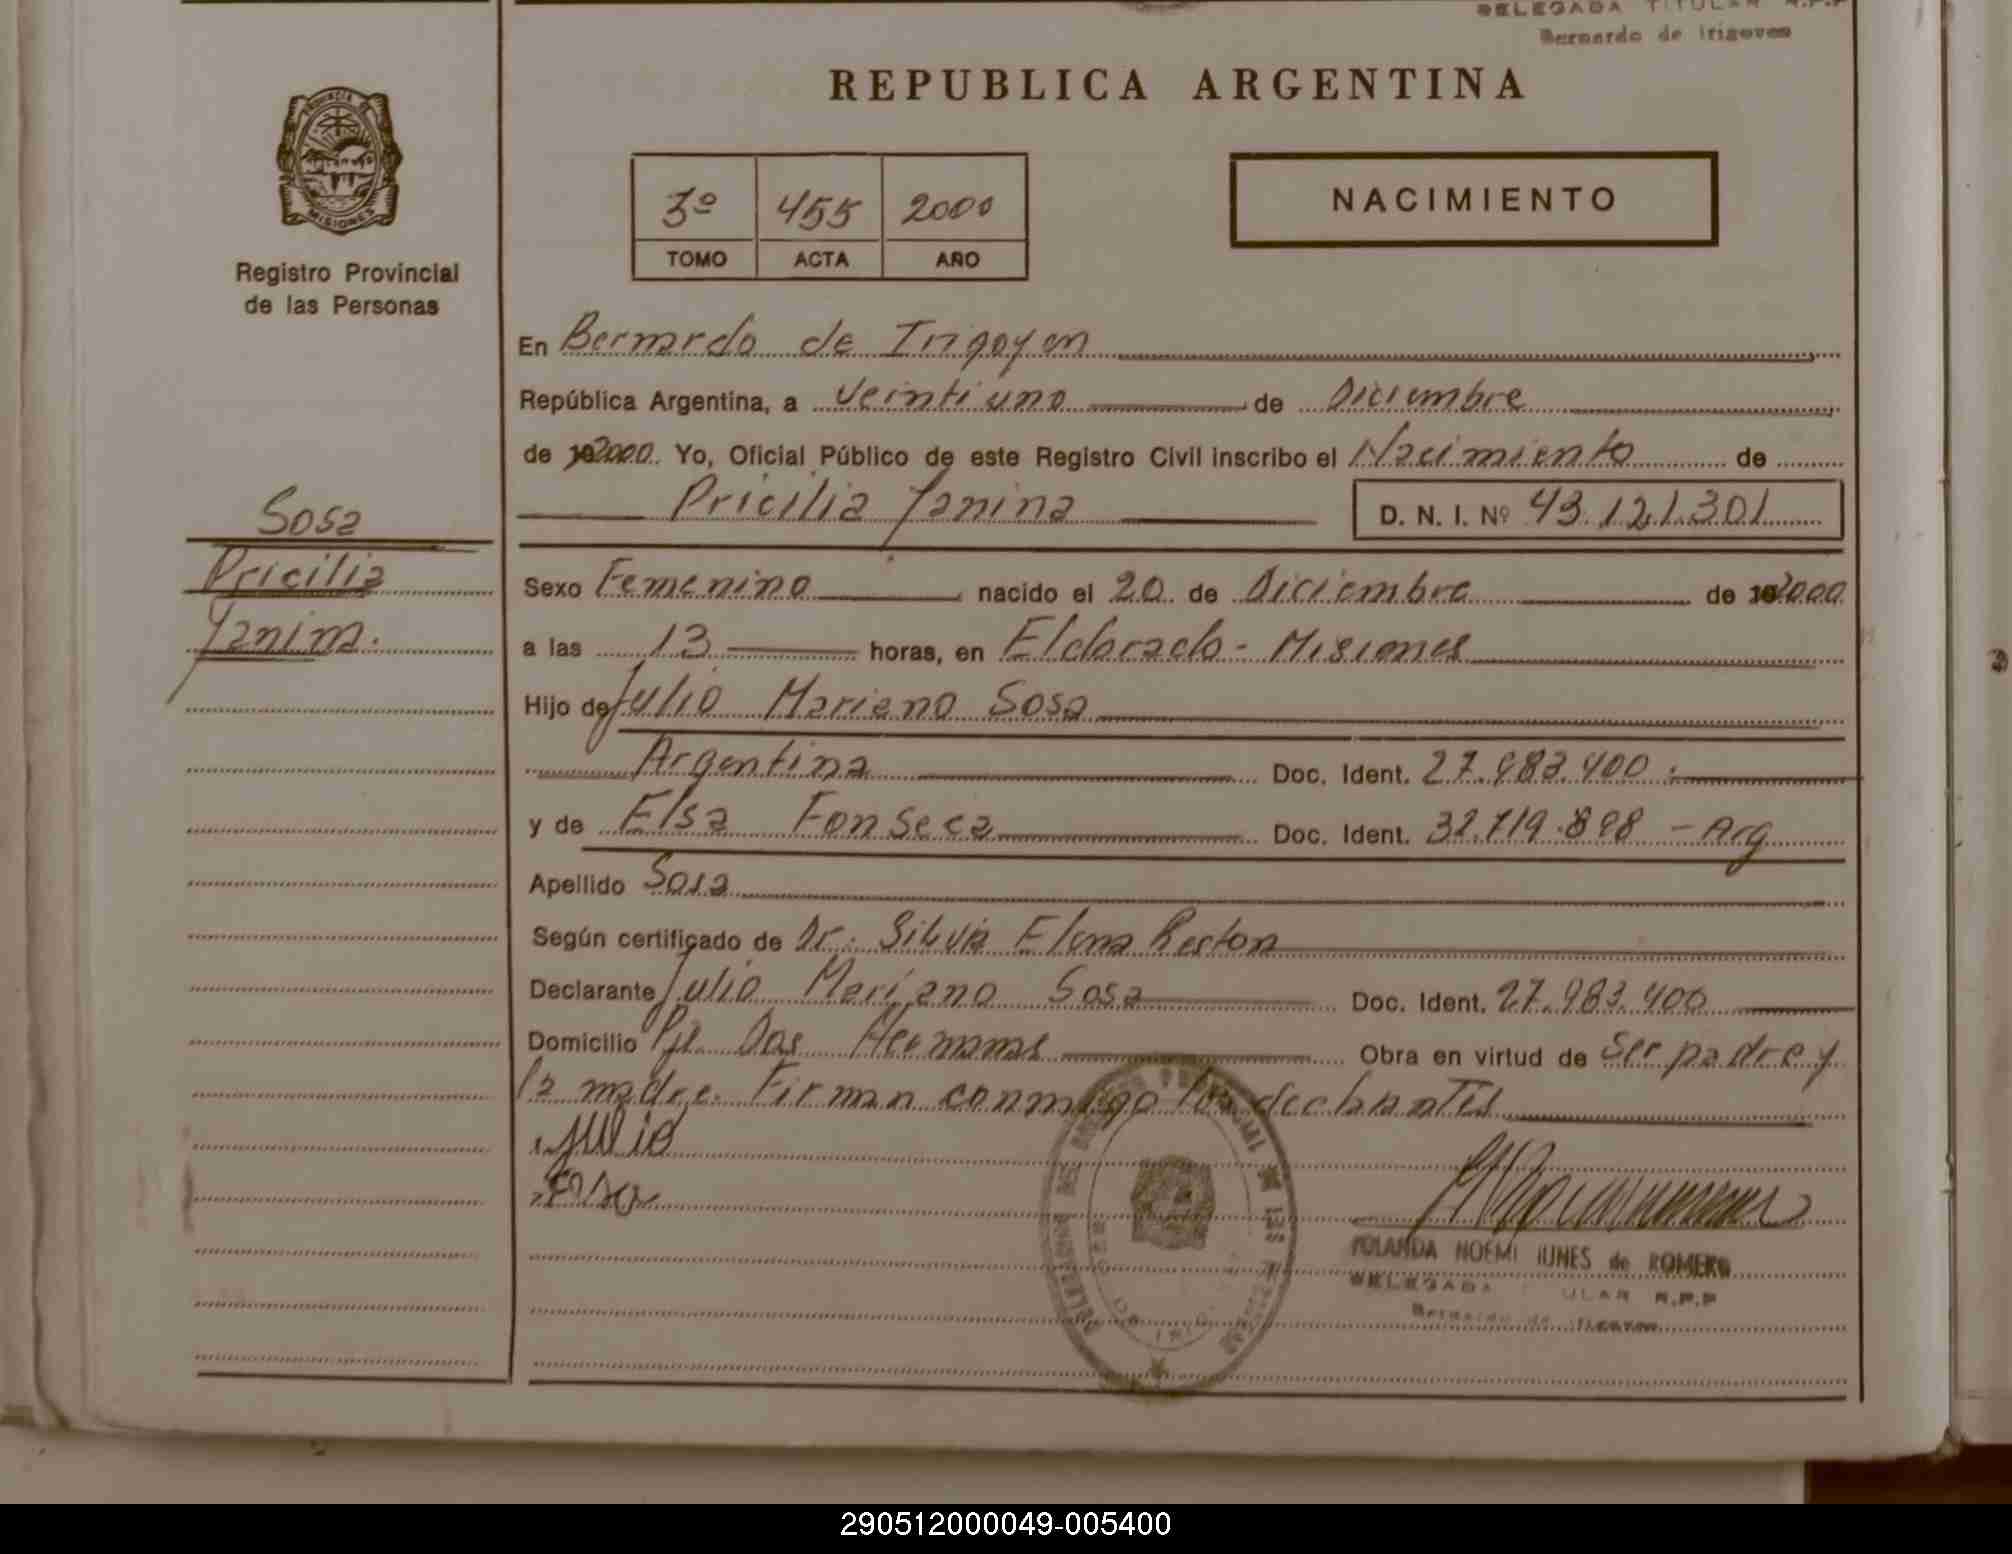 DELEGADA TITULAR R.P.P
Bernardo de Irigoyen
REPUBLICA ARGENTINA
PROVINCIA DE
MISIONES
Registro Provincial
de las Personas
3º 455 2000
TOMO ACTA AÑO
NACIMIENTO
En Bernardo de Irigoyen
República Argentina, a Veintiuno de Diciembre
de 2000. Yo, Oficial Público de este Registro Civil inscribo el Nacimiento de
Pricilia Yanina D. N. I. Nº 43.121.301
Sosa
Pricilia
Yanina.
Sexo Femenino nacido el 20 de Diciembre de 2000
a las 13 horas, en Eldorado - Misiones
Hijo de Julio Mariano Sosa
Argentina Doc. Ident. 27.983.400.
y de Elsa Fonseca Doc. Ident. 32.719.898 - Arg
Apellido Sosa
Según certificado de Dr. Silvia Elena Reston
Declarante Julio Mariano Sosa Doc. Ident. 27.983.400
Domicilio Pje. Dos Hermanas Obra en virtud de Ser padre y
la madre. Firman conmigo los declarantes
Julio
Sosa
YOLANDA NOEMI IUNES de ROMERO
DELEGADA ULAR R.P.P
Bernardo de Irigoyen
290512000049-005400